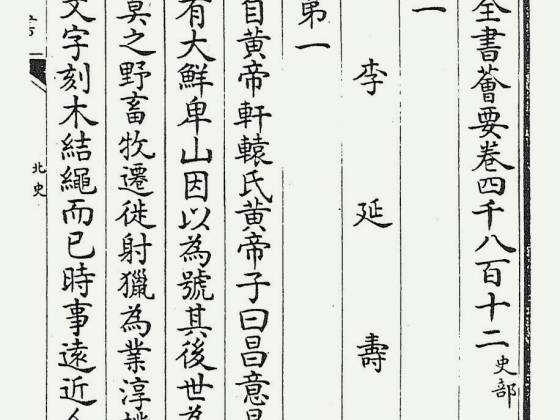 全書薈要卷四千八百十二 史部
一
李延壽
第一
自黃帝軒轅氏黃帝子曰昌意昌
有大鮮卑山因以為號其後世為
莫之野畜牧遷徙射獵為業淳樸
文字刻木結繩而已時事遠近人
北史